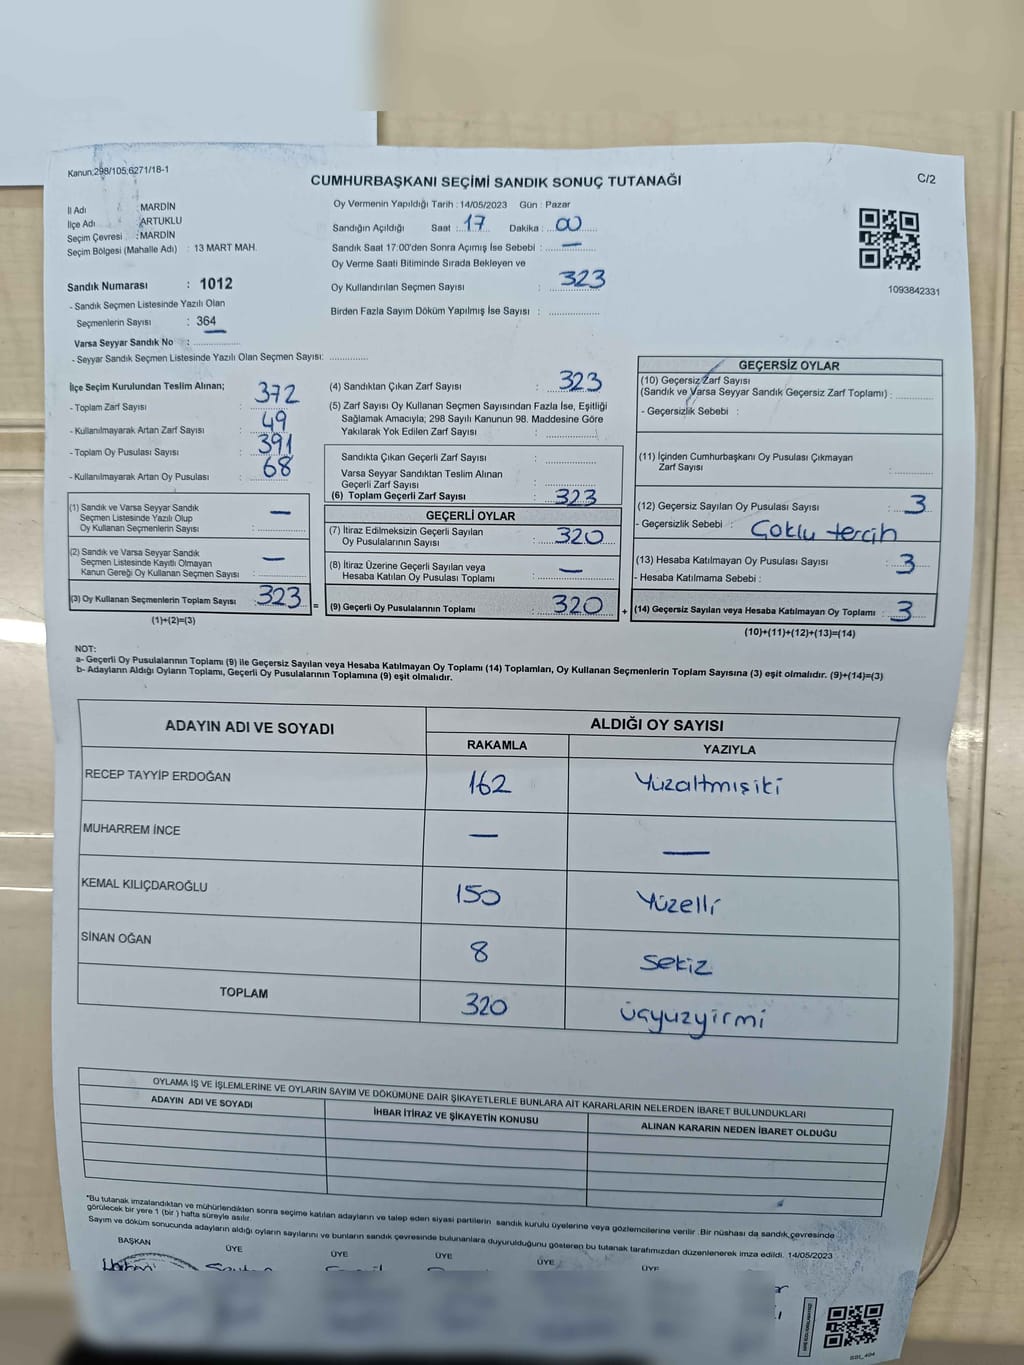 Kanun:298/105,6271/18-1
CUMHURBAŞKANI SEÇİMİ SANDIK SONUÇ TUTANAĞI
C/2
İl Adı : MARDİN
İlçe Adı : ARTUKLU
Seçim Çevresi : MARDİN
Seçim Bölgesi (Mahalle Adı) : 13 MART MAH.
Sandık Numarası : 1012
- Sandık Seçmen Listesinde Yazılı Olan
Seçmenlerin Sayısı : 364
Varsa Seyyar Sandık No :
- Seyyar Sandık Seçmen Listesinde Yazılı Olan Seçmen Sayısı:
Oy Vermenin Yapıldığı Tarih : 14/05/2023 Gün : Pazar
Sandığın Açıldığı Saat : 17 Dakika : 00
Sandık Saat 17:00'den Sonra Açımış İse Sebebi : —
Oy Verme Saati Bitiminde Sırada Bekleyen ve
Oy Kullandırılan Seçmen Sayısı : 323
Birden Fazla Sayım Döküm Yapılmış İse Sayısı :
1093842331
İlçe Seçim Kurulundan Teslim Alınan;
- Toplam Zarf Sayısı : 372
- Kullanılmayarak Artan Zarf Sayısı : 49
- Toplam Oy Pusulası Sayısı : 391
- Kullanılmayarak Artan Oy Pusulası : 68
(1) Sandık ve Varsa Seyyar Sandık
Seçmen Listesinde Yazılı Olup
Oy Kullanan Seçmenlerin Sayısı : —
(2) Sandık ve Varsa Seyyar Sandık
Seçmen Listesinde Kayıtlı Olmayan
Kanun Gereği Oy Kullanan Seçmen Sayısı : —
(3) Oy Kullanan Seçmenlerin Toplam Sayısı : 323 =
(1)+(2)=(3)
(4) Sandıktan Çıkan Zarf Sayısı : 323
(5) Zarf Sayısı Oy Kullanan Seçmen Sayısından Fazla İse, Eşitliği
Sağlamak Amacıyla; 298 Sayılı Kanunun 98. Maddesine Göre
Yakılarak Yok Edilen Zarf Sayısı :
Sandıkta Çıkan Geçerli Zarf Sayısı :
Varsa Seyyar Sandıktan Teslim Alınan
Geçerli Zarf Sayısı :
(6) Toplam Geçerli Zarf Sayısı : 323
GEÇERLİ OYLAR
(7) İtiraz Edilmeksizin Geçerli Sayılan
Oy Pusulalarının Sayısı : 320
(8) İtiraz Üzerine Geçerli Sayılan veya
Hesaba Katılan Oy Pusulası Toplamı : —
(9) Geçerli Oy Pusulalarının Toplamı : 320 +
GEÇERSİZ OYLAR
(10) Geçersiz Zarf Sayısı
(Sandık ve Varsa Seyyar Sandık Geçersiz Zarf Toplamı) :
- Geçersizlik Sebebi :
(11) İçinden Cumhurbaşkanı Oy Pusulası Çıkmayan
Zarf Sayısı :
(12) Geçersiz Sayılan Oy Pusulası Sayısı : 3
- Geçersizlik Sebebi : Çoklu tercih
(13) Hesaba Katılmayan Oy Pusulası Sayısı : 3
- Hesaba Katılmama Sebebi :
(14) Geçersiz Sayılan veya Hesaba Katılmayan Oy Toplamı : 3
(10)+(11)+(12)+(13)=(14)
NOT:
a- Geçerli Oy Pusulalarının Toplamı (9) ile Geçersiz Sayılan veya Hesaba Katılmayan Oy Toplamı (14) Toplamları, Oy Kullanan Seçmenlerin Toplam Sayısına (3) eşit olmalıdır. (9)+(14)=(3)
b- Adayların Aldığı Oyların Toplamı, Geçerli Oy Pusulalarının Toplamına (9) eşit olmalıdır.
ADAYIN ADI VE SOYADI
ALDIĞI OY SAYISI
RAKAMLA YAZIYLA
RECEP TAYYİP ERDOĞAN 162 Yüzaltmışiki
MUHARREM İNCE — —
KEMAL KILIÇDAROĞLU 150 Yüzelli
SİNAN OĞAN 8 Sekiz
TOPLAM 320 üçyuzyirmi
OYLAMA İŞ VE İŞLEMLERİNE VE OYLARIN SAYIM VE DÖKÜMÜNE DAİR ŞİKAYETLERLE BUNLARA AİT KARARLARIN NELERDEN İBARET BULUNDUKLARI
ADAYIN ADI VE SOYADI İHBAR İTİRAZ VE ŞİKAYETİN KONUSU ALINAN KARARIN NEDEN İBARET OLDUĞU
*Bu tutanak imzalandıktan ve mühürlendikten sonra seçime katılan adayların ve talep eden siyasi partilerin sandık kurulu üyelerine veya gözlemcilerine verilir .Bir nüshası da sandık çevresinde
görülecek bir yere 1 (bir ) hafta süreyle asılır.
Sayım ve döküm sonucunda adayların aldığı oyların sayılarını ve bunların sandık çevresinde bulunanlara duyurulduğunu gösteren bu tutanak tarafımızdan düzenlenerek imza edildi. 14/05/2023
BAŞKAN ÜYE ÜYE ÜYE ÜYE ÜYE